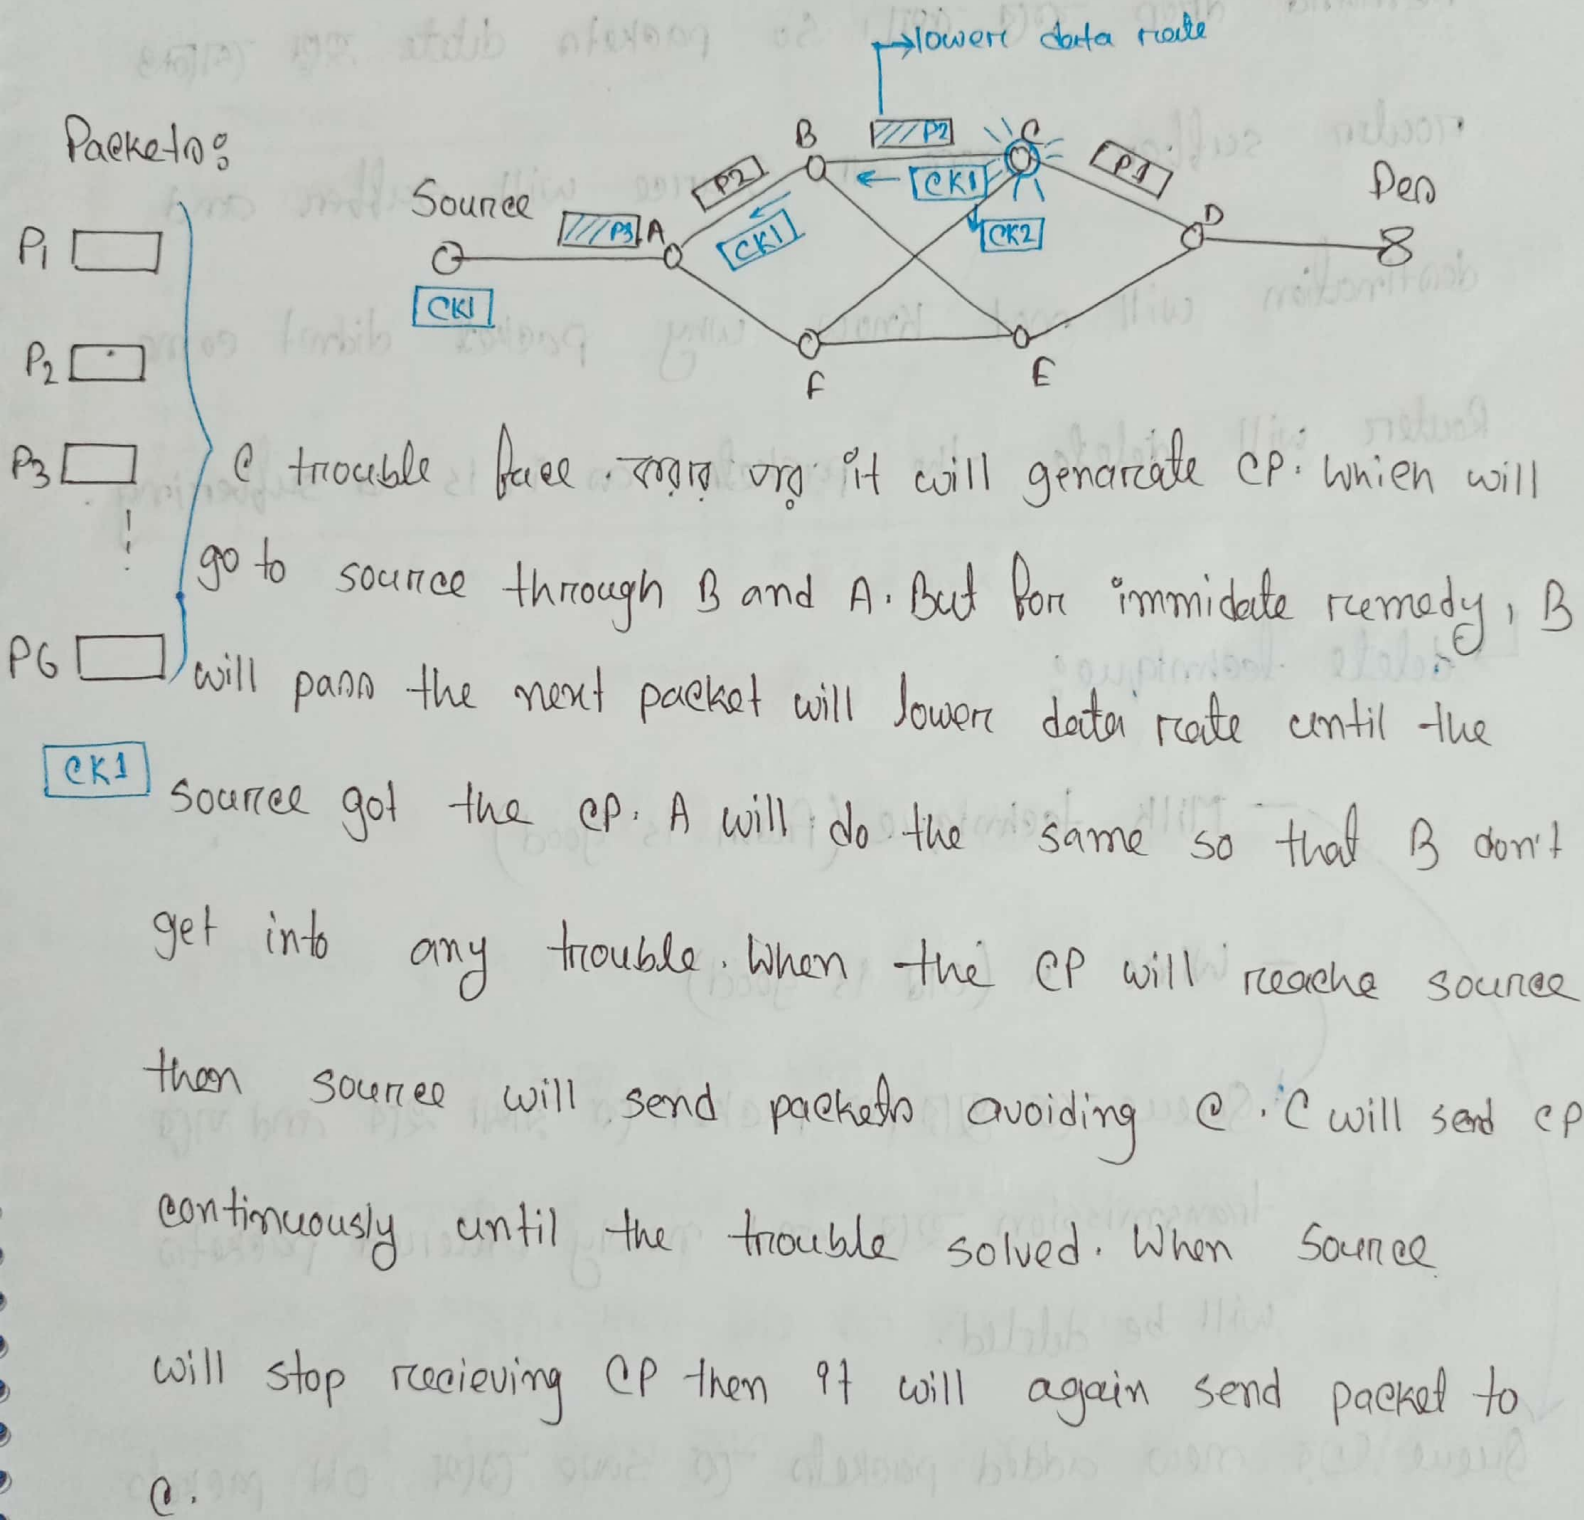 lower data rate
Packets:
Source
Des
P1
P2
P3
P6
CK1
A
B
C
D
E
F
P3
P2
P2
P1
CK1
CK1
CK2
CK1
C trouble face করার পর it will genarate CP. Which will
go to source through B and A. But for immidate remedy, B
will pass the next packet will lower data rate until the
source got the CP. A will do the same so that B don't
get into any trouble. When the CP will reache source
then source will send packets avoiding C. C will send CP
continuously until the trouble solved. When source
will stop recieving CP then it will again send packet to
C.